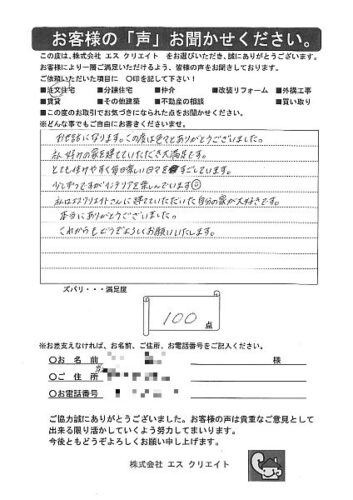 お客様の「声」お聞かせください。
この度は、株式会社 エス クリエイト をお選びいただき、誠にありがとうございます。
お客様により一層ご満足いただけるよう、皆様の声をお聞きしております。
ご依頼いただいた項目に 〇印を記して下さい！
■注文住宅 ■分譲住宅 ■仲介 ■改装リフォーム ■外構工事
■賃貸 ■その他建築 ■不動産の相談 ■買い取り
■この度のお取引でお気づきになられた点をお聞かせください。
※どんな事でもご自由にお書きくださいませ。
お世話になります。この度は色々とありがとうございました。
私好みの家を建てていただき大満足です。
とても住みやすく毎日楽しい日々を過ごしています。
少しずつですがインテリアを楽しんでいます
私はエスクリエイトさんに建てていただいた自分の家が大好きです。
本当にありがとうございました。
これからもどうぞよろしくお願いいたします。
ズバリ・・・満足度
100 点
※お差支えなければ、お名前、ご住所、お電話番号をご記入ください。
〇お 名 前 様
〇ご 住 所
〇お電話番号
ご協力誠にありがとうございました。お客様の声は貴重なご意見として
出来る限り活かしていくよう努力してまいります。
今後ともどうぞよろしくお願い申し上げます。
株式会社 エス クリエイト